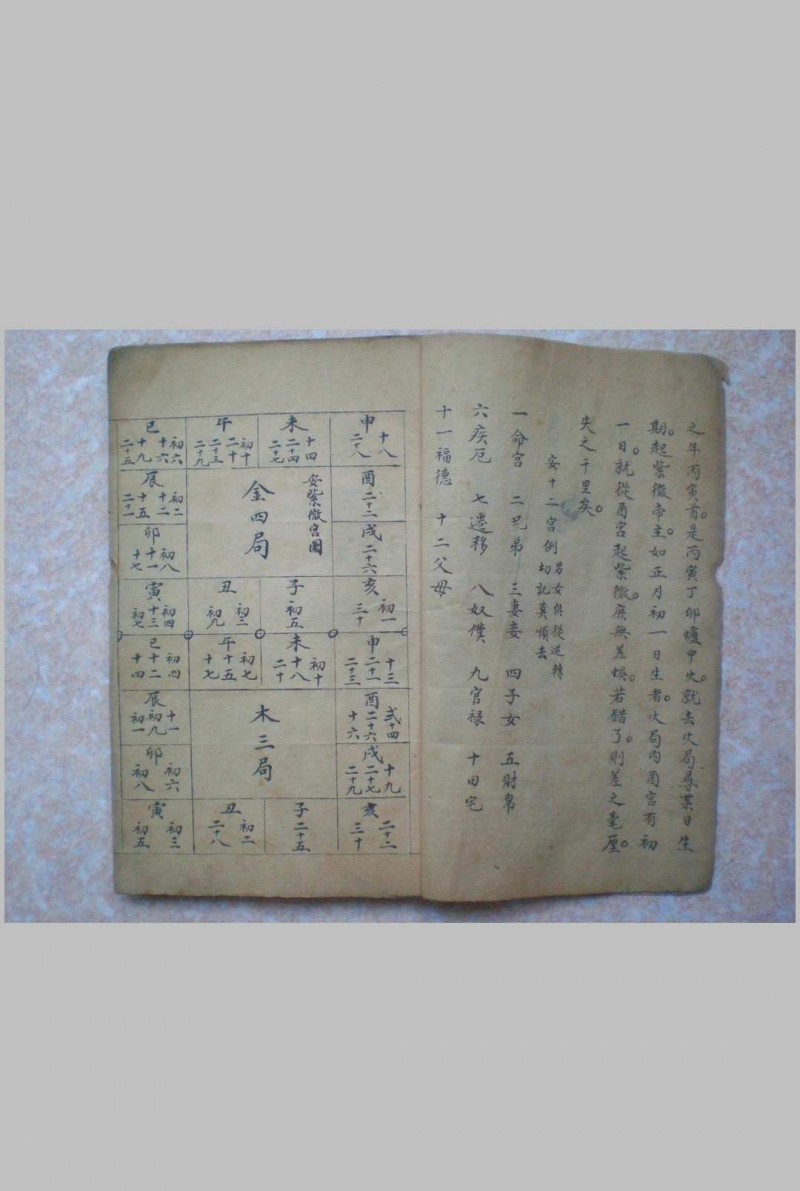 之年丙寅首。是丙寅丁卯爐中火。就去火局尋某日生
期。起紫微帝主。如正月初一日生者。火局内酉宮有初
一日。就從酉宮起紫微。庶無差悞。若錯了則差之毫厘。
失之千里矣。
安十二宮例 男女俱從逆轉
切記莫順去
一命宮 二兄弟 三妻妾 四子女 五財帛
六疾厄 七遷移 八奴僕 九官禄 十田宅
十一福德 十二父母
安紫微宮圖
金四局
申 十八 二十八
未 十四 二十四 二十七
午 初十 二十 二十三 二十九
巳 初六 十六 十九 二十五
酉 二十二
辰 初二 十二 十五 二十一
戌 二十六
卯 初八 十一 十七
亥 初一 三十
子 初五
丑 初三 初九
寅 初四 十三 初七
木三局
申 十三 二十一 二十三
未 初十 十八 二十
午 初七 十五 十七
巳 初四 十二 十四
酉 弍十四 二十六 十六
辰 十一 初九 初一
戌 十九 二十七 二十九
卯 初六 初八
亥 二十二 三十
子 二十五
丑 初二 二十八
寅 初三 初五